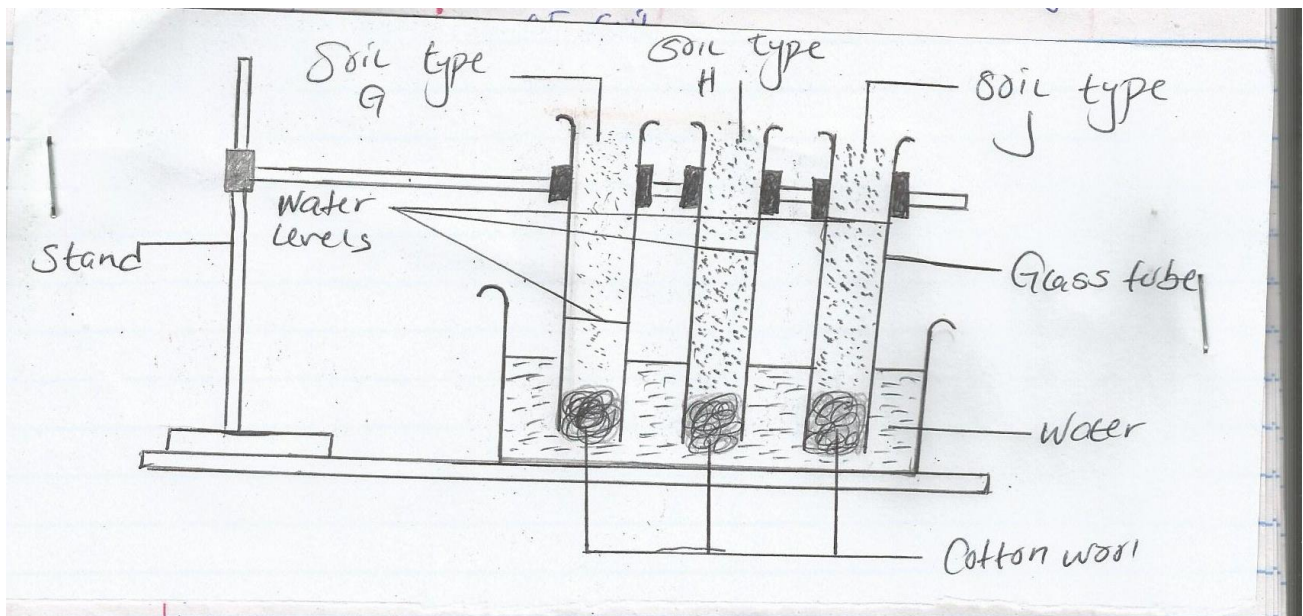 Soil type
G
Soil type
H
Soil type
J
Water
levels
Stand
Glass tube
Water
Cotton wool